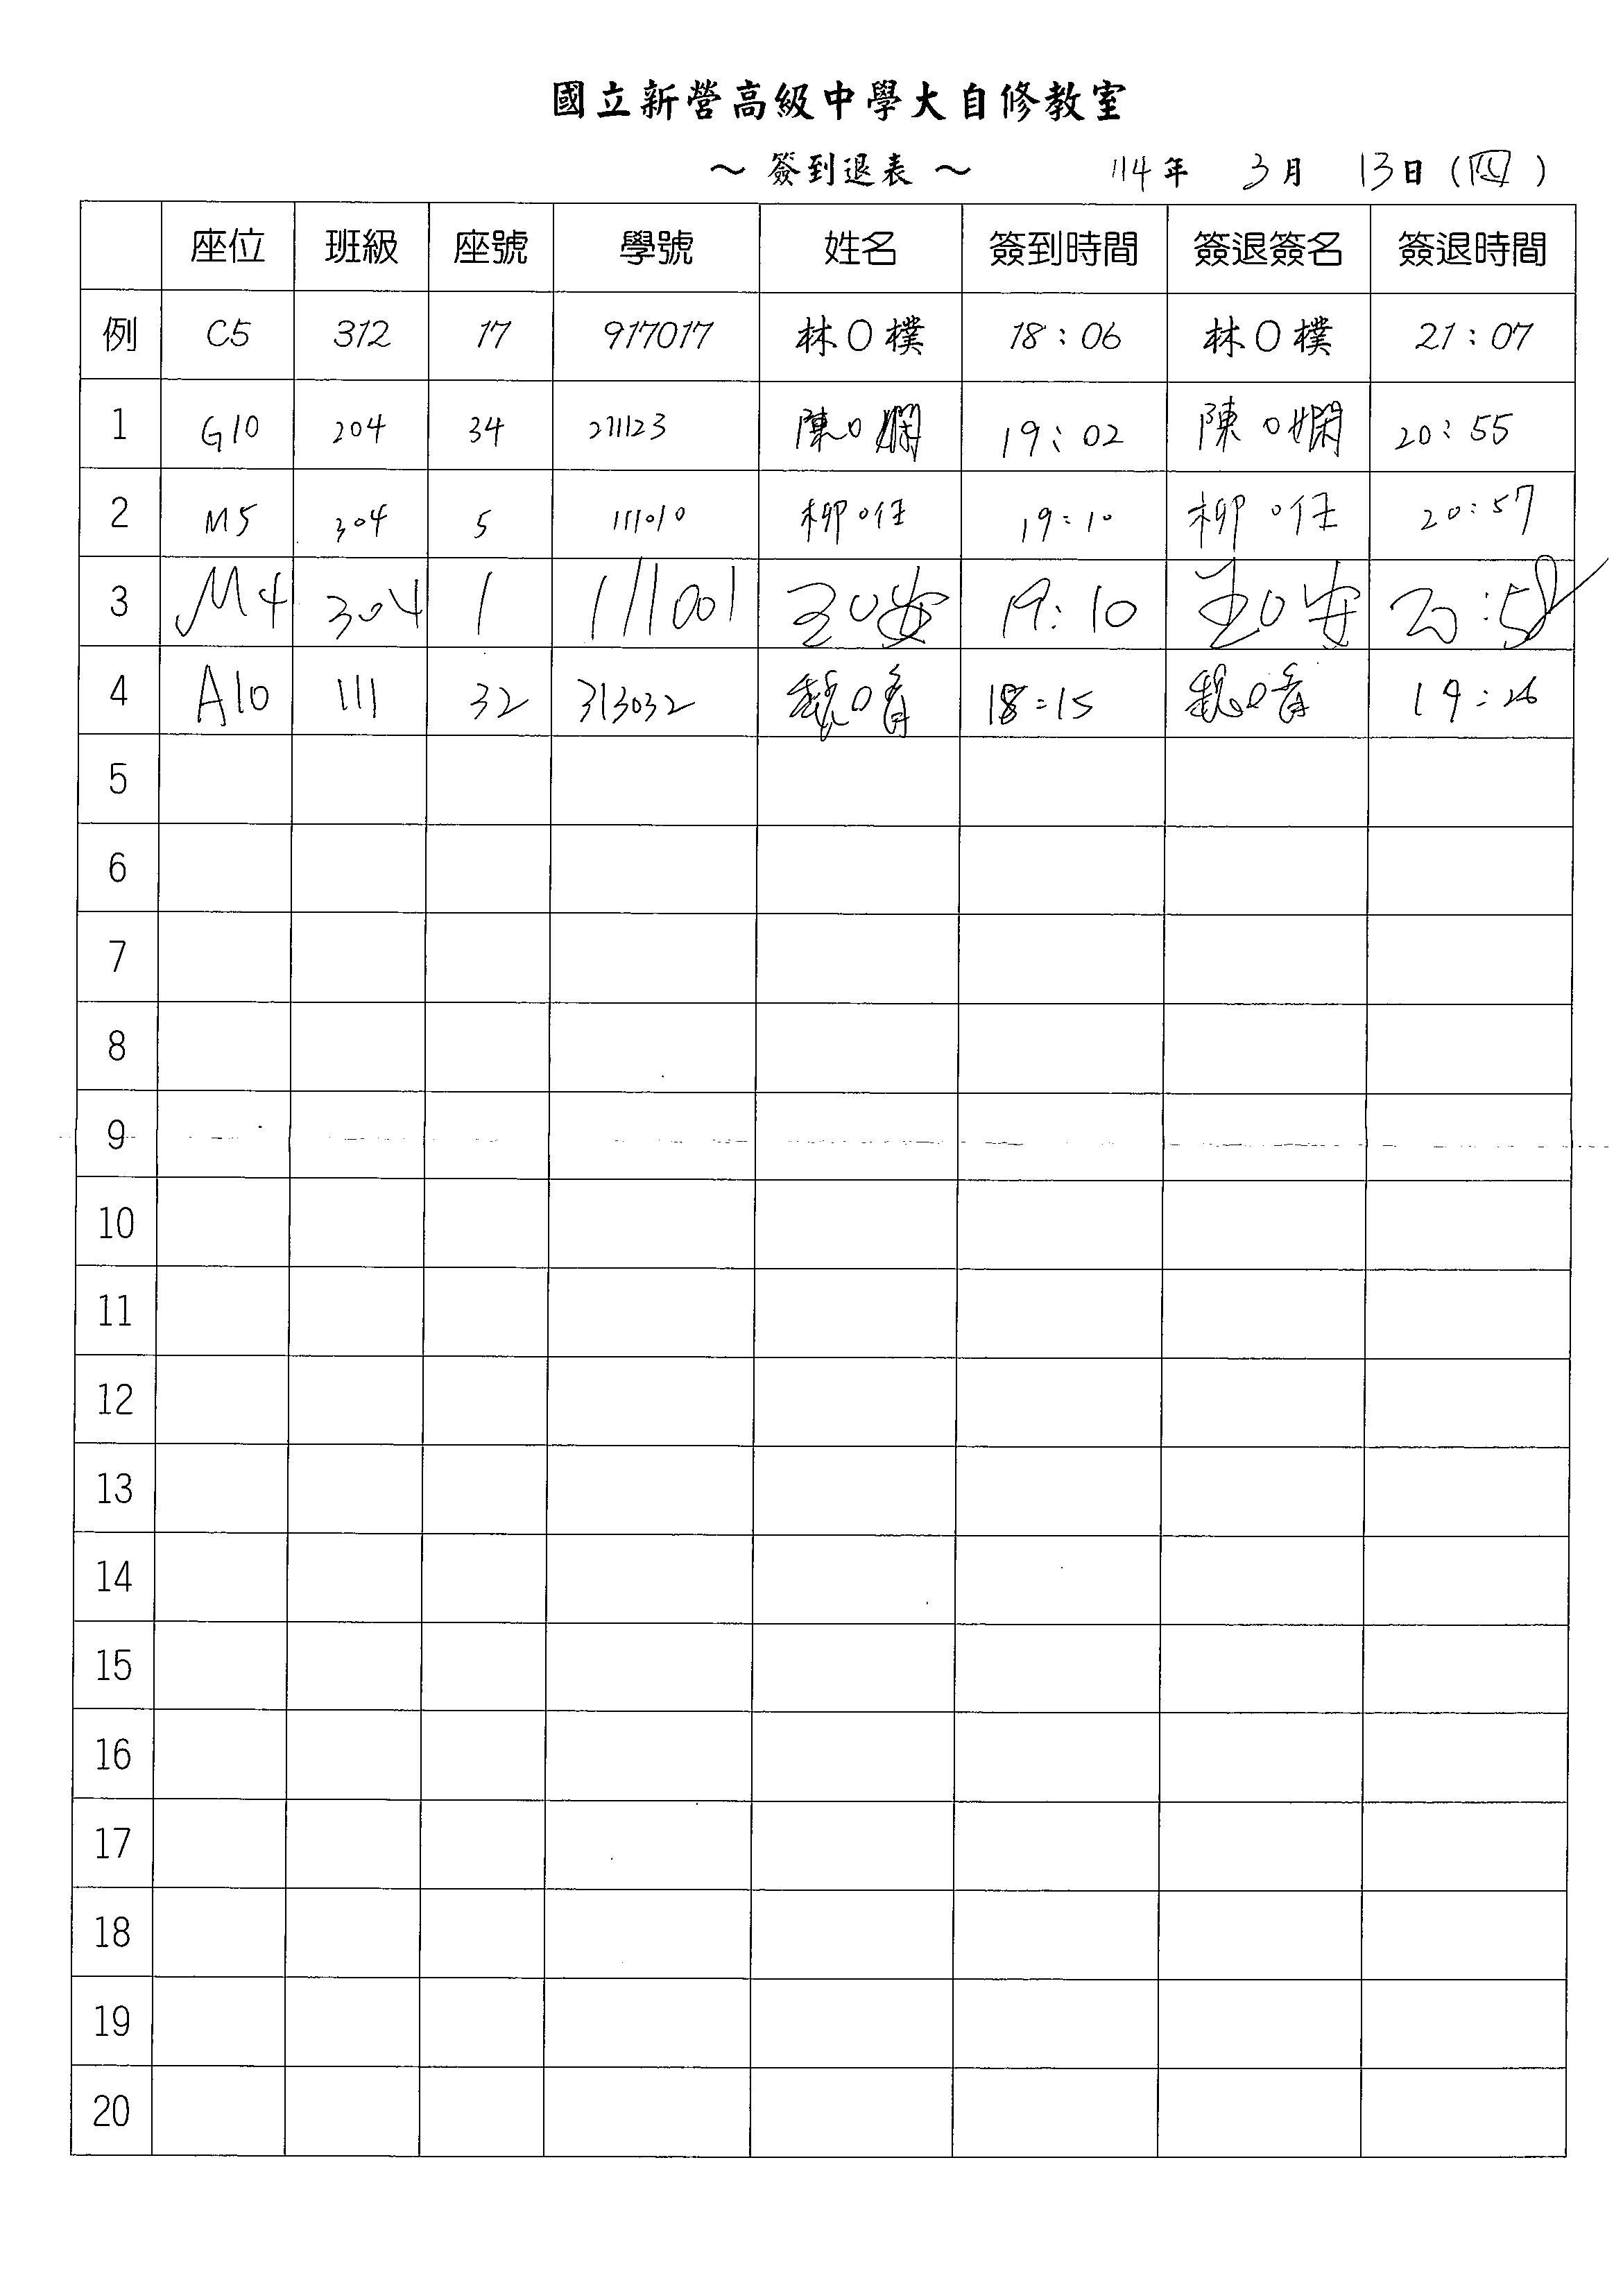 國立新營高級中學大自修教室
～ 簽到退表 ～ 114年 3月 13日(四)
座位 班級 座號 學號 姓名 簽到時間 簽退簽名 簽退時間
例 C5 312 17 917017 林O樸 18：06 林O樸 21：07
1 G10 204 34 211123 陳O嫻 19：02 陳O嫻 20：55
2 M5 304 5 111010 柳O任 19：10 柳O任 20：57
3 M4 304 1 111001 王O安 19：10 王O安 20：58
4 A10 111 32 313032 魏O 18：15 魏O 19：26
5
6
7
8
9
10
11
12
13
14
15
16
17
18
19
20